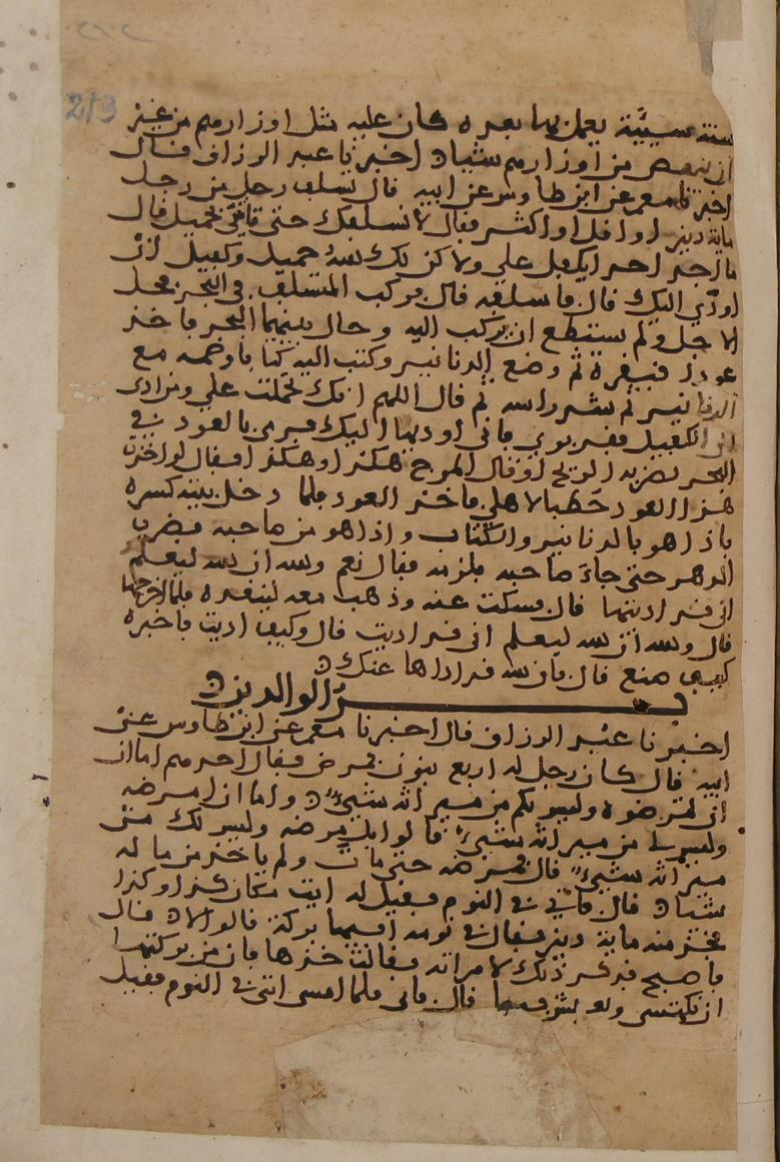 213
سنة سيئة يعمل بها بعده كان عليه مثل اوزارهم من غير
ان ينقص من اوزارهم شيئا اخبرنا عبد الرزاق قال
اخبرنا معمر عن ابن طاوس عن ابيه قال تسلف رجل من رجل
ماية دينر او اقل او اكثر فقال لا نسلفك حتى تاتي بحميل قال
ما اجد احدا يكفل علي ولا كن لك الله حميل وكفيل ان
اودي اليك قال فاسلفه قال فركب المتسلف في البحر فحل
الاجل ولم يستطع ان يركب اليه وحال بينهما البحر فاخذ
عودا فنقره ثم وضع الدنانير وكتب اليه كتابا وضعه مع
الدنانير ثم شد راسه ثم قال اللهم انك تحملت علي
الى الكفيل فقد بوي فاني اوديها اليك فرمى بالعود في
البحر فضربه الريح او قال الموج هكذا وهكذا فقال لو اخذت
هذا العود حطبا لاهلي فاخذ العود فلما دخل بيته كسره
فاذا هو بالدنانير والكتاب واذا هو من صاحبه فضرب
الدهر حتى جاء صاحبه فلزمه فقال نعم والله ان الله ليعلم
اني قد اديتها قال فسكت عنه وذهب معه لينقده فلما اخرجها
قال والله ان الله ليعلم اني قد اديت قال وكيف اديت فاخبره
كيف صنع قال فان الله قد اداها عنك
بر الوالدين
اخبرنا عبد الرزاق قال اخبرنا معمر عن ابن طاوس عن
ابيه قال كان رجل له اربع بنون فمرض فقال احدهم اما ان
ان تمرضوه وليس لكم من ميراثه شيء واما ان امرضه
وليس لي من ميراثه شيء قالوا بل مرضه وليس لك من
ميراثه شيء قال فمرضه حتى مات ولم ياخذ من ماله
شيئا قال فاتي في النوم فقيل له ايت مكان كذا وكذا
فخذ منه ماية دينر فقال في نومه افيها بركة قالوا لا قال
فاصبح فذكر ذلك لامراته فقالت خذها فان من بركتها
ان نكتسي ونعيش فيها قال فابى فلما امسى اتي في النوم فقيل